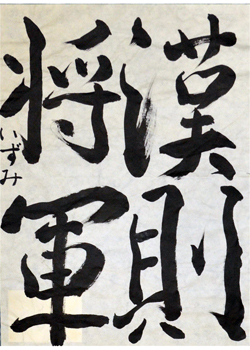 漢則
将軍
いずみ